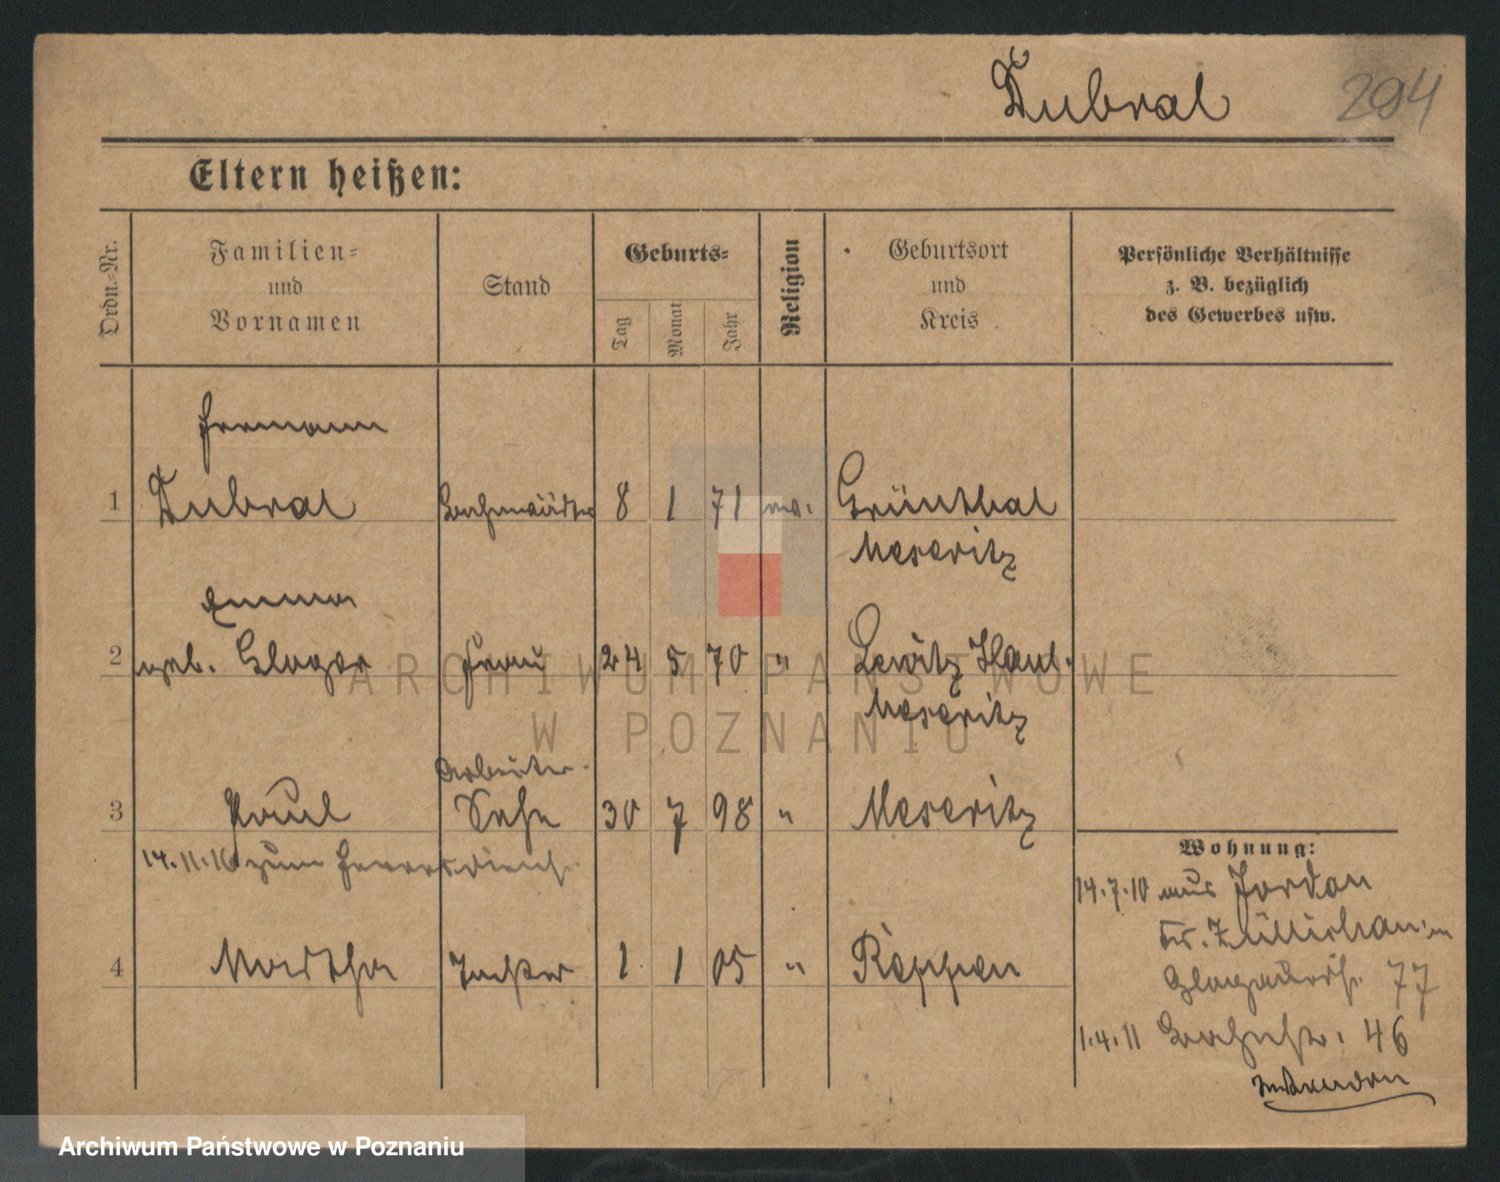 Dubral 294
Eltern heißen:
Ordn.-Nr.
Familien-
und
Vornamen
Stand
Geburts-
Tag
Monat
Jahr
Religion
Geburtsort
und
Kreis
Persönliche Verhältnisse
z. B. bezüglich
des Gewerbes usw.
Hermann
1 Dubral Bahnwärter 8 1 71 ev. Grünthal
Meseritz
Emma
2 geb. Gloger Frau 24 5 70 " Lewitz Haul.
Meseritz
Arbeiter
3 Paul Sohn 30 7 98 " Meseritz
14.11.16 zum Heeresdienst
Wohnung:
14.7.10 aus Jordan
Kr. Züllichau in
77
4 Martha Tochter 1 1 05 " Reppen
1.4.11 Bahnhstr. 46
ARCHIWUM PAŃSTWOWE
W POZNANIU
Archiwum Państwowe w Poznaniu